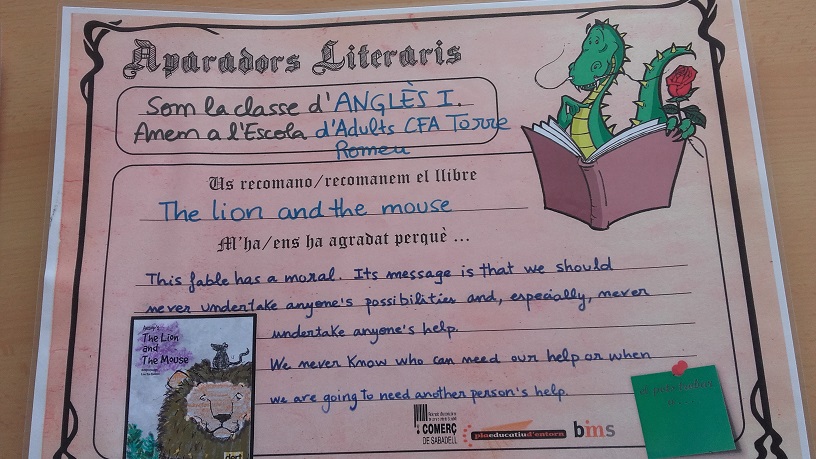 Aparadors Literaris
Som la classe d'ANGLÈS I.
Anem a l'Escola d'Adults CFA Torre
Romeu
Us recomano/recomanem el llibre
The lion and the mouse
M'ha/ens ha agradat perquè ...
This fable has a moral. Its message is that we should
never undertake anyone's possibilities and, especially, never
undertake anyone's help.
We never know who can need our help or when
we are going to need another person's help.
Aesop's
The Lion
and
The Mouse
COMERÇ
DE SABADELL
plaeducatiud'entorn
bims